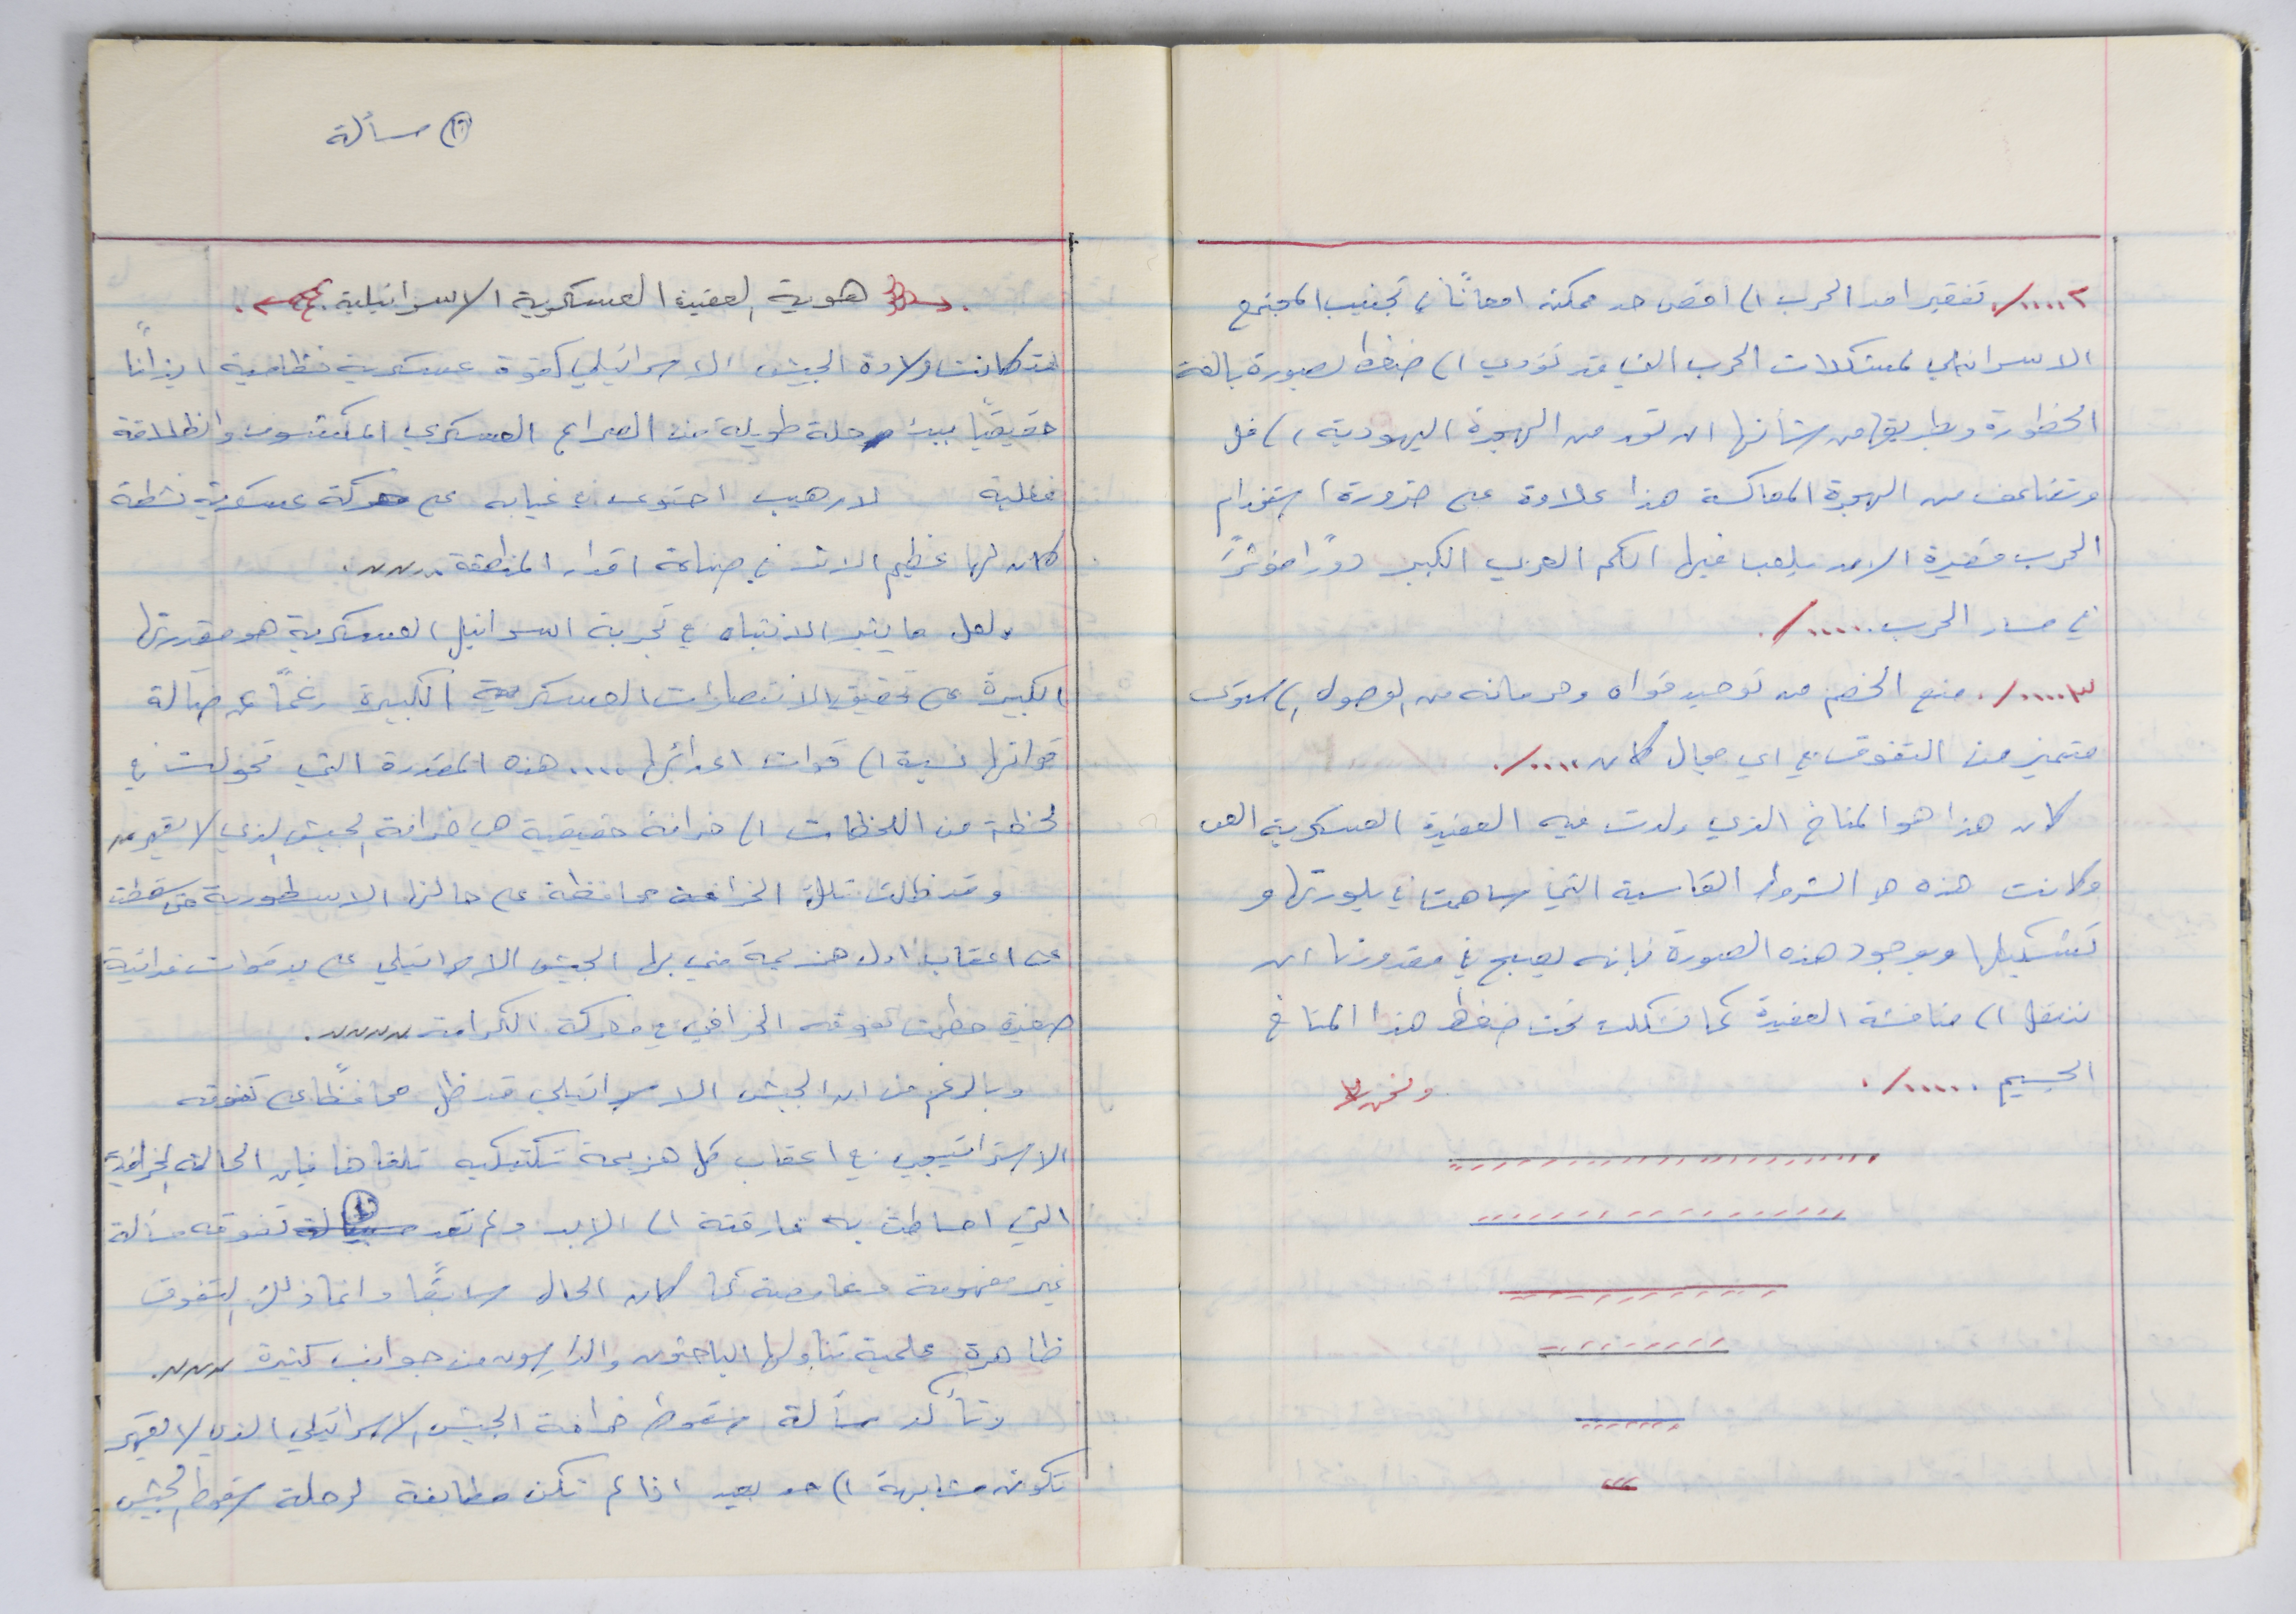 ٢...../. تقصير امد الحرب الى اقصى حد ممكن امعانًا في تجنيب المجتمع
الاسرائيلي لمشكلات الحرب التي قد تؤدي الى ضغط بصورة بالغة
الخطورة وبطريقة من شأنها ان تحد من الهجرة اليهودية الى
وتضاعف من الهجرة المعاكسة هذا علاوة على ضرورة استخدام
الحرب قصيرة الامد يلعب فيها الكم العربي الكبير دورًا مؤثرًا
في مسار الحرب ...../.
٣...../. منع الخصم من توحيد قواه وحرمانه من الوصول الى مستوى
متميز من التفوق في اي مجال كان ...../.
كان هذا هو المناخ الذي ولدت فيه العقيدة العسكرية
وكانت هذه هي الشروط القاسية التي ساهمت في بلورتها و
تشكيلها وبوجود هذه الصورة فإنه يصبح في مقدورنا ان
ننتقل الى مناقشة العقيدة كما تشكلت تحت ضغط هذا المناخ
الجسيم ...../.
١٠ مسألة
هوية العقيدة العسكرية الاسرائيلية
لقد كانت ولادة الجيش الاسرائيلي كقوة عسكرية نظامية ايذانًا
حقيقيًا ببدء مرحلة طويلة من الصراع العسكري المكشوف وانطلاقة
فعلية لارهيب احتوى في غيابه على حركة عسكرية نشطة
كان لها عظيم الاثر في صياغة اقدار المنطقة ....
ولعل ما يثير الانتباه في تجربة اسرائيل العسكرية هو مقدرتها
الكبيرة على تحقيق الانتصارات العسكرية الكبيرة رغمًا عن ضآلة
قواتها نسبة الى قوات اعدائها .... هذه المقدرة التي تحولت في
لحظة من اللحظات الى خرافة حقيقية هي خرافة الجيش الذي لا يقهر ..
وقد ظلت تلك الخرافة محافظة على حالتها الاسطورية حتى سقطت
على اعقاب اول هزيمة مني بها الجيش الاسرائيلي على يد قوات فدائية
صغيرة حطمت تفوقه الخرافي في معركة الكرامة ....
وبالرغم من ان الجيش الاسرائيلي قد ظل محافظًا على تفوقه
الاستراتيجي في اعقاب كل هزيمة تكتيكيه تلقاها فإن الحالة الخرافية
التي احاطت به فارقته الى الابد ولم تعد تفوقه مسألة
غير مفهومة وغامضة كما كان الحال سابقًا وانما ذلك التفوق
ظاهرة علمية تناولها الباحثون والدارسون من جوانب كثيرة ....
وتأكد مسألة سقوط خرافة الجيش الاسرائيلي الذي لا يقهر
تكون مشابهة الى حد بعيد اذا لم تكن مطابقة لمرحلة سقوط الجيش